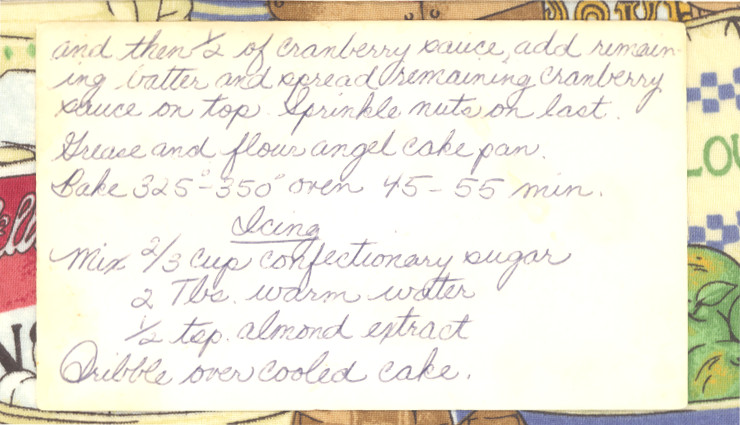 and then 1/2 of cranberry sauce, add remain-
ing batter and spread remaining cranberry
sauce on top. Sprinkle nuts on last.
Grease and flour angel cake pan.
Bake 325°-350° oven 45-55 min.
Icing
Mix 2/3 cup confectionary sugar
2 Tbs. warm water
1/2 tsp. almond extract
Dribble over cooled cake.